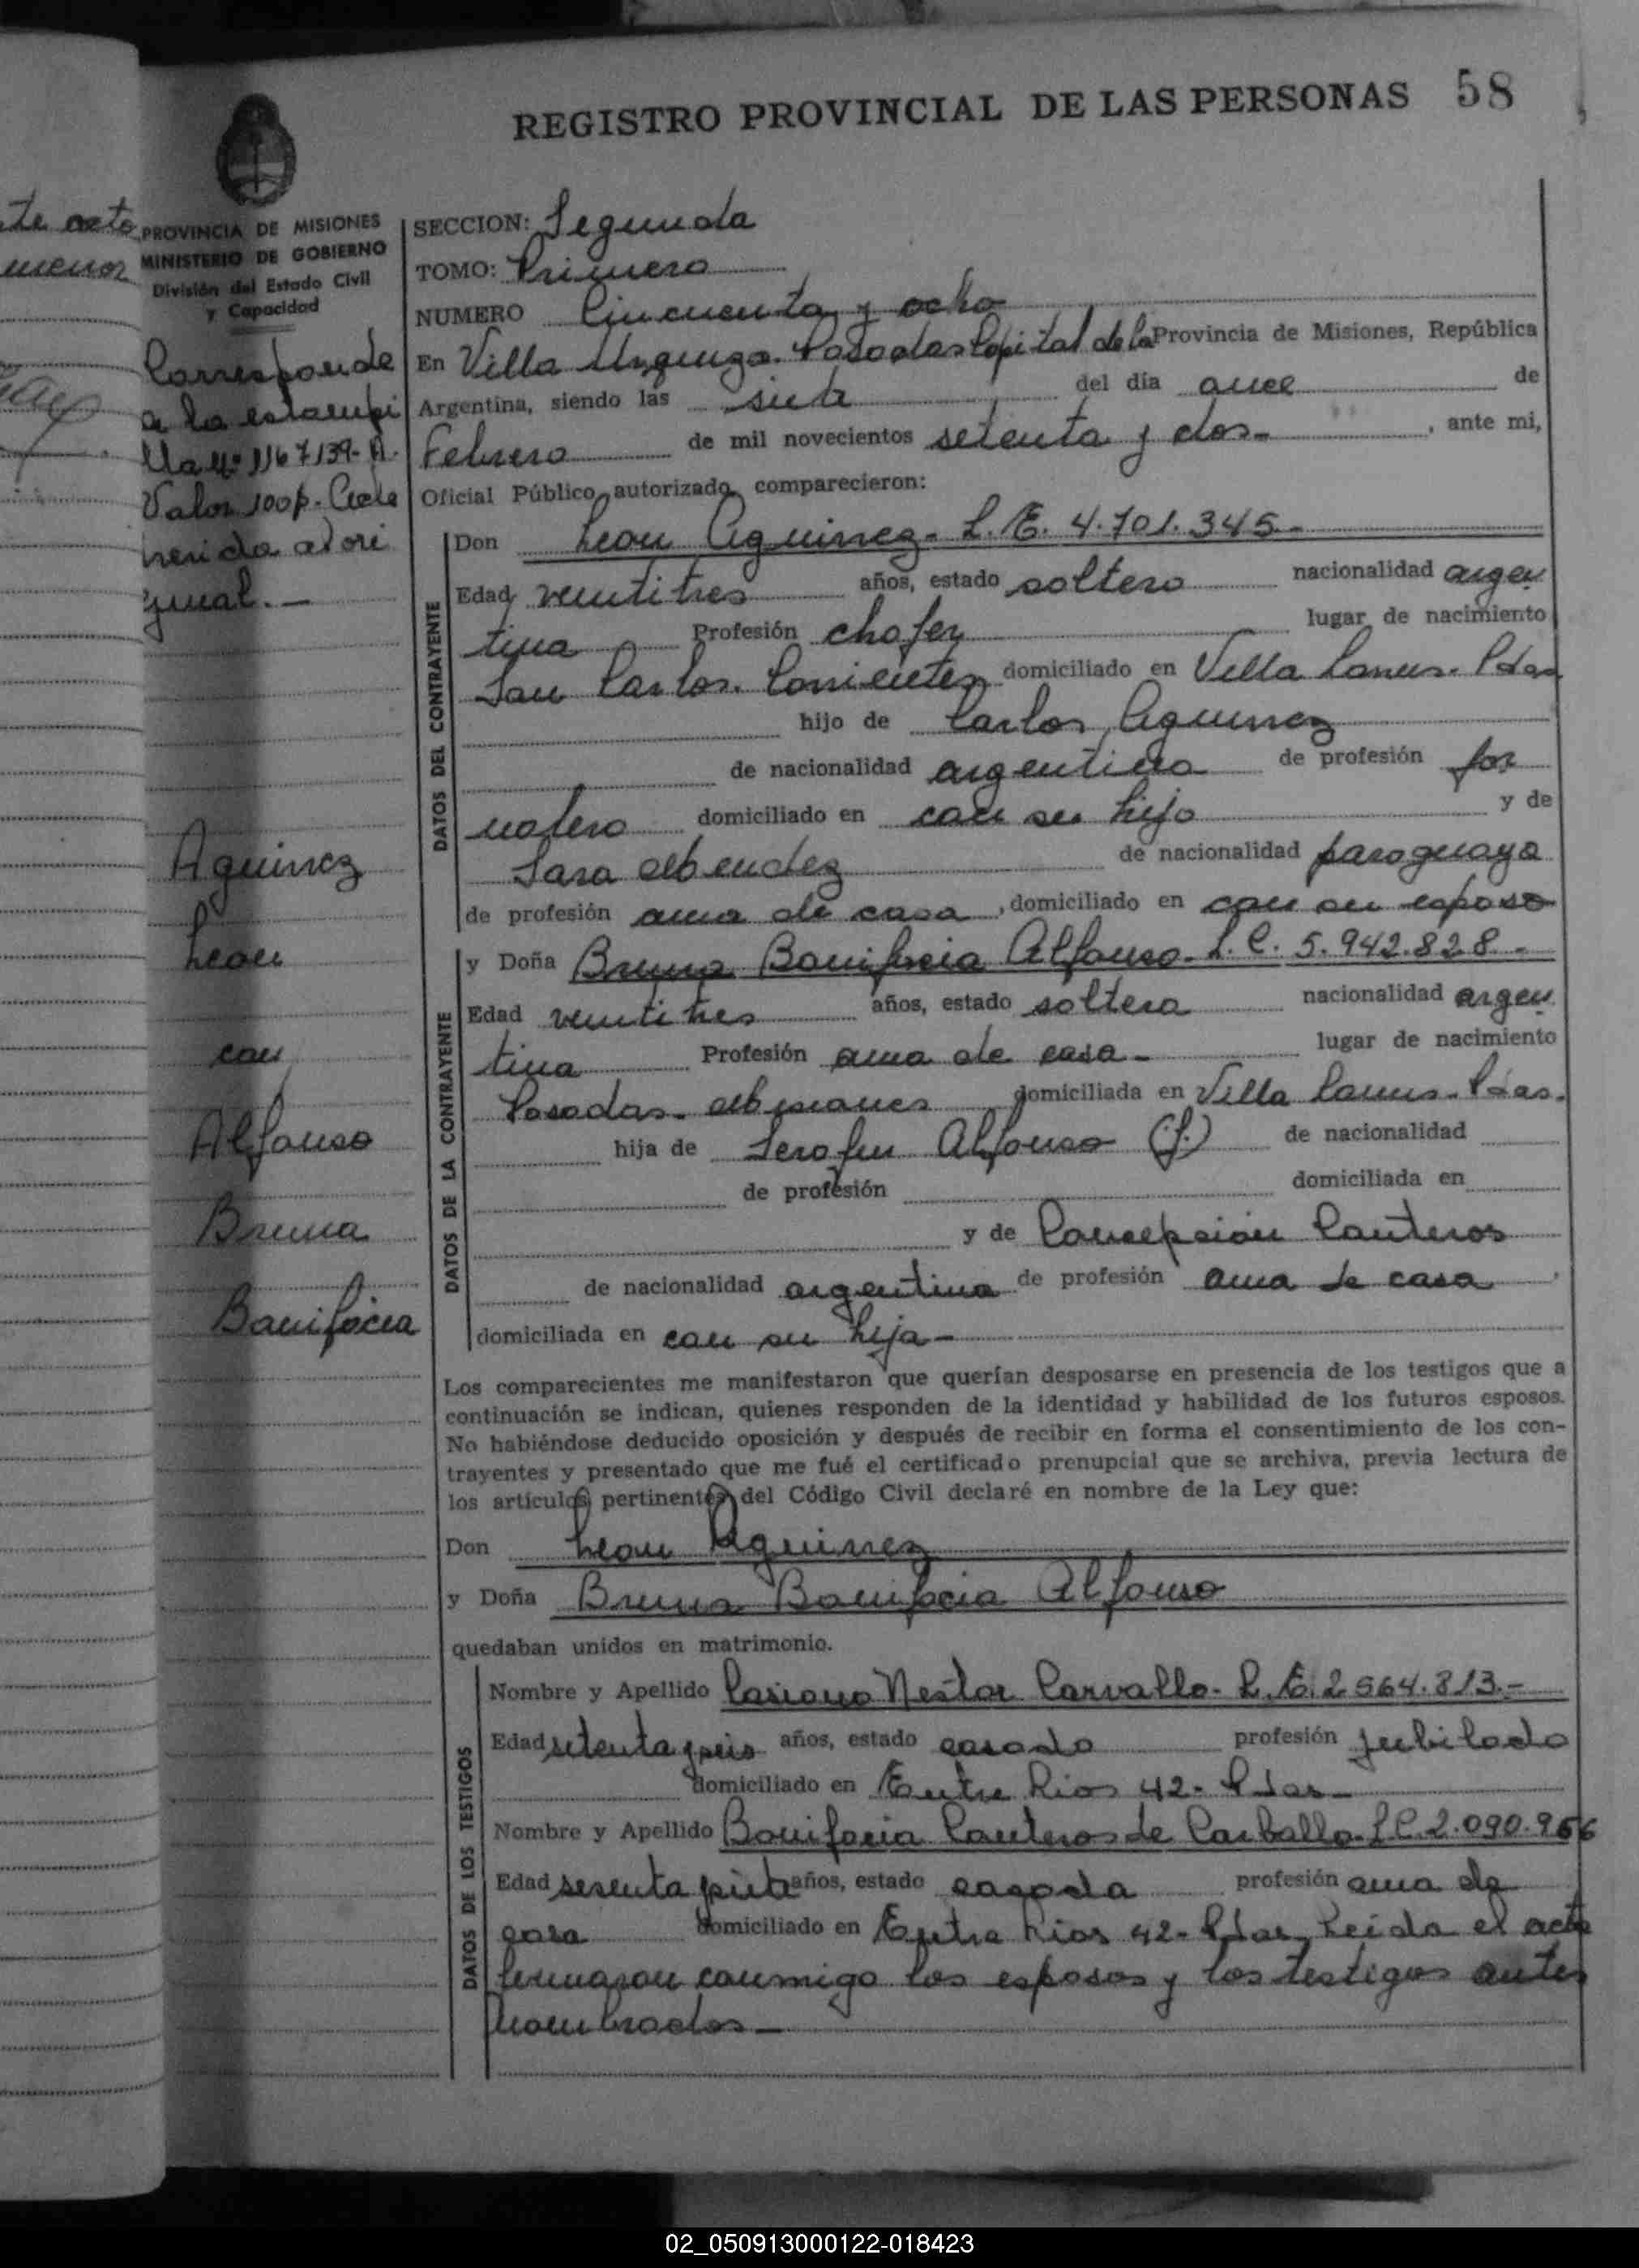 REGISTRO PROVINCIAL DE LAS PERSONAS 58
PROVINCIA DE MISIONES
MINISTERIO DE GOBIERNO
División del Estado Civil
y Capacidad
Corresponde
a la estampi
lla Nº 1167139-A.
Valor 100p. Adhe
rida al ori
ginal.—
Aguirrez
Leon
con
Alfonso
Bruna
Bonifacia
SECCION: Segunda
TOMO: Primero
NUMERO Cincuenta y ocho
En Villa Urquiza. Posadas Capital de la Provincia de Misiones, República
Argentina, siendo las siete del día once de
Febrero de mil novecientos setenta y dos- , ante mi,
Oficial Público autorizado, comparecieron:
DATOS DEL CONTRAYENTE
Don Leon Aguirrez- L.E. 4.701.345-
Edad veintitres años, estado soltero nacionalidad argen
tina Profesión chofer lugar de nacimiento
San Carlos. Corrientes domiciliado en Villa Lanus. Pdas
hijo de Carlos Aguirrez
de nacionalidad argentino de profesión jor
nalero domiciliado en con su hijo y de
Sara Mendez de nacionalidad paraguaya
de profesión ama de casa , domiciliado en con su esposo
DATOS DE LA CONTRAYENTE
y Doña Bruna Bonifacia Alfonso- L.C. 5.942.828-
Edad veintitres años, estado soltera nacionalidad argen
tina Profesión ama de casa- lugar de nacimiento
Posadas- Misiones domiciliada en Villa Lanus- Pdas.
hija de Serafin Alfonso (f.) de nacionalidad
de profesión domiciliada en
y de Concepción Canteros
de nacionalidad argentina de profesión ama de casa
domiciliada en con su hija-
Los comparecientes me manifestaron que querían desposarse en presencia de los testigos que a
continuación se indican, quienes responden de la identidad y habilidad de los futuros esposos.
No habiéndose deducido oposición y después de recibir en forma el consentimiento de los con-
trayentes y presentado que me fué el certificado prenupcial que se archiva, previa lectura de
los artículos pertinentes del Código Civil declaré en nombre de la Ley que:
Don Leon Aguirrez
y Doña Bruna Bonifacia Alfonso
quedaban unidos en matrimonio.
DATOS DE LOS TESTIGOS
Nombre y Apellido Casiano Nestor Carvallo- L.E. 2564.813.-
Edad setenta y seis años, estado casado profesión jubilado
domiciliado en Entre Rios 42- Pdas-
Nombre y Apellido Bonifacia Canteros de Carballo L.C. 2.090.966
Edad sesenta y siete años, estado casada profesión ama de
casa domiciliado en Entre Rios 42- Pdas, Leida el acta
firmaron conmigo los esposos y los testigos antes
nombrados-
02_050913000122-018423